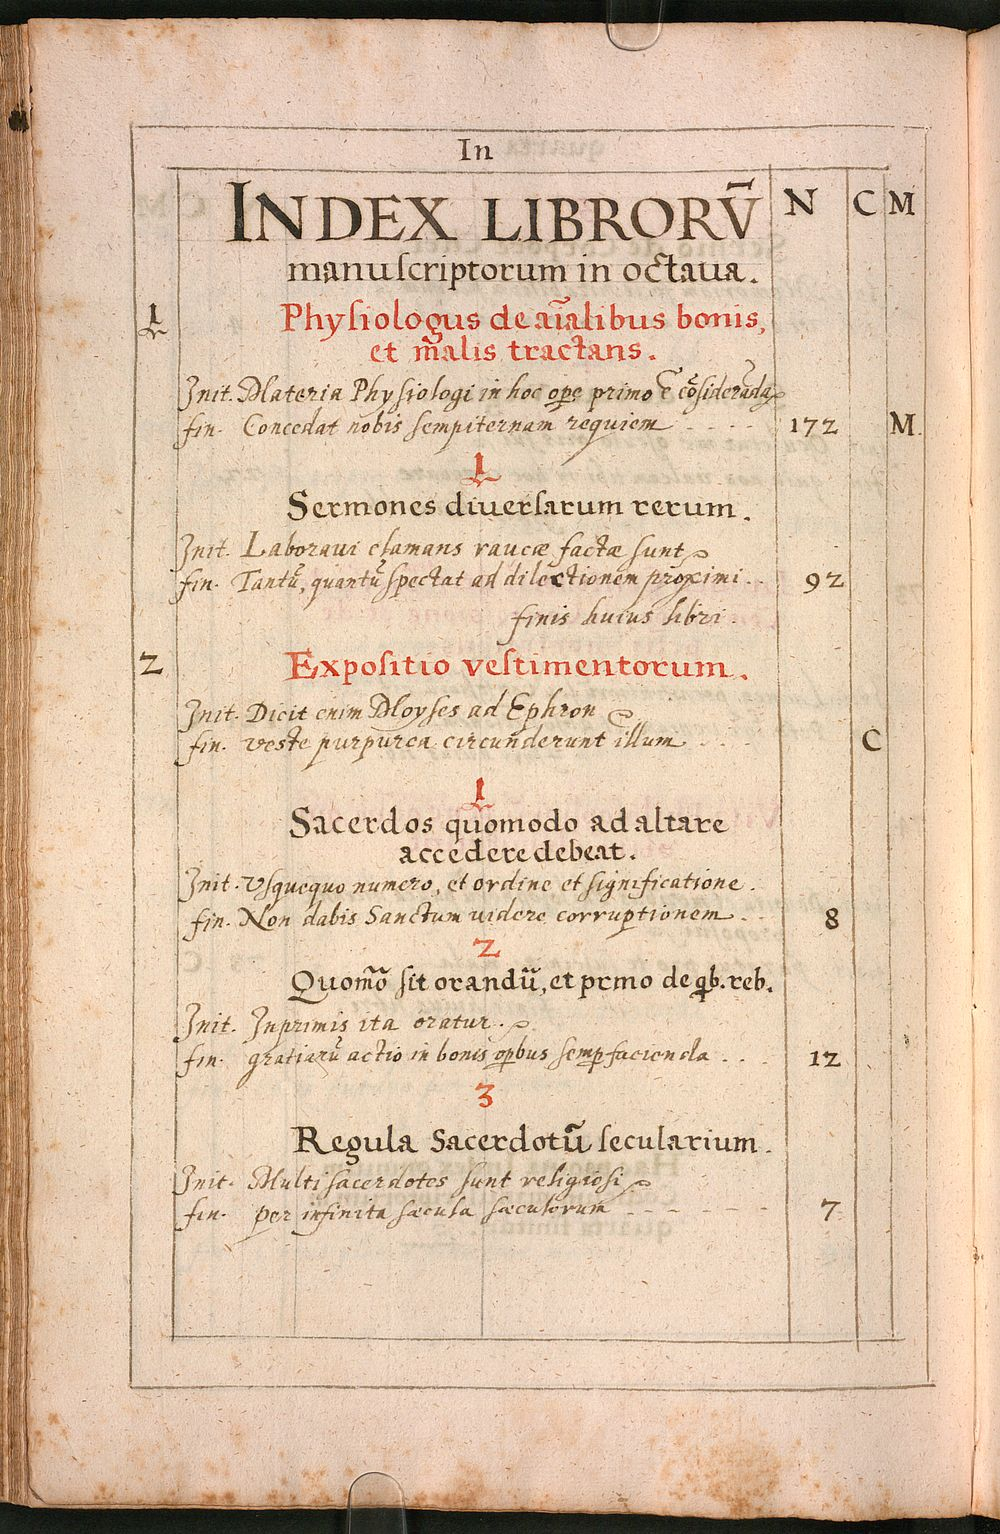 In
INDEX LIBRORŪ N C M
manuſcriptorum in octaua.
1 Phyſiologus de aīalibus bonis,
et malis tractans.
Init. Materia Phyſiologi in hoc ope primo ē cōſiderāda
fin. Concedat nobis ſempiternam requiem - - - - 172 M.
1
Sermones diuerſarum rerum.
Init. Laboraui clamans raucæ factæ ſunt
fin. Tantū, quantū ſpectat ad dilectionem proximi . . 92
finis huius libri.
2 Expoſitio veſtimentorum.
Init. Dicit enim Moyſes ad Ephron
fin. veste purpurea circunderunt illum . . . C
1
Sacerdos quomodo ad altare
accedere debeat.
Init. Vſquequo numero, et ordine et ſignificatione.
fin. Non dabis Sanctum uidere corruptionem . . 8
2
Quom̄o ſit orandū, et prmo de qb. reb.
Init. Inprimis ita oratur.
fin. gratiarū actio in bonis opbus ſemp facienda . . . 12
3
Regula Sacerdotū ſecularium.
Init. Multi ſacerdotes ſunt religioſi
fin. per infinita ſæcula ſæculorum - - - - - - 7